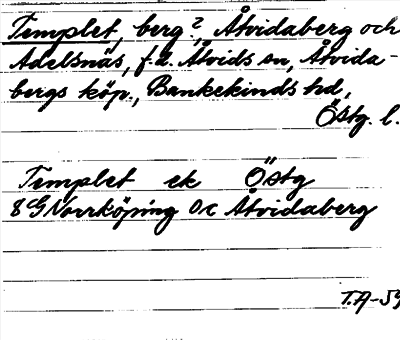 Templet, berg?, Åtvidaberg och
Adelsnäs, f.d. Åtvids sn, Åtvida-
bergs köp., Bankekinds hd,
Östg. l.
Templet ek Östg
8 G Norrköping 0c Åtvidaberg
T.A-59